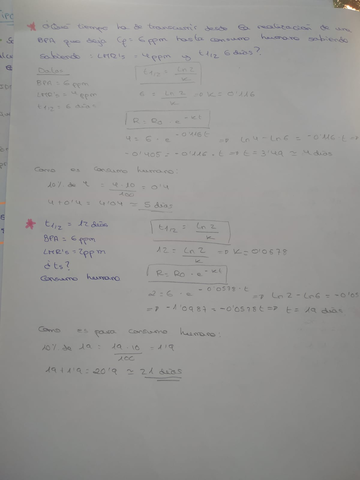 * ¿Qué tiempo ha de transcurrir desde la realización de un
BPA que dejó Cp = 6 ppm hasta consumo humano sabiendo
sabiendo = LMR's = 4 ppm y t1/2 6 días?
Datos
BPA = 6 ppm
LMR's = 4 ppm
t1/2 = 6 días
t1/2 = ln 2 / k
6 = ln 2 / k → k = 0'116
R = R0 · e^-kt
4 = 6 · e^-0'116t ⇒ ln 4 - ln 6 = -0'116 · t ⇒
-0'405 = -0'116 · t → t = 3'49 ≈ 4 días
Como es consumo humano:
10% de 4 = 4·10 / 100 = 0'4
4 + 0'4 = 4'4 ≈ 5 días
* t1/2 = 12 días
BPA = 6 ppm
LMR's = 2 ppm
¿ts?
Consumo humano
t1/2 = ln 2 / k
12 = ln 2 / k ⇒ k = 0'0578
R = R0 · e^-kt
2 = 6 · e^-0'0578·t ⇒ ln 2 - ln 6 = -0'05
⇒ -1'0987 = -0'0578 · t ⇒ t = 19 días
Como es para consumo humano:
10% de 19 = 19·10 / 100 = 1'9
19 + 1'9 = 20'9 ≈ 21 días